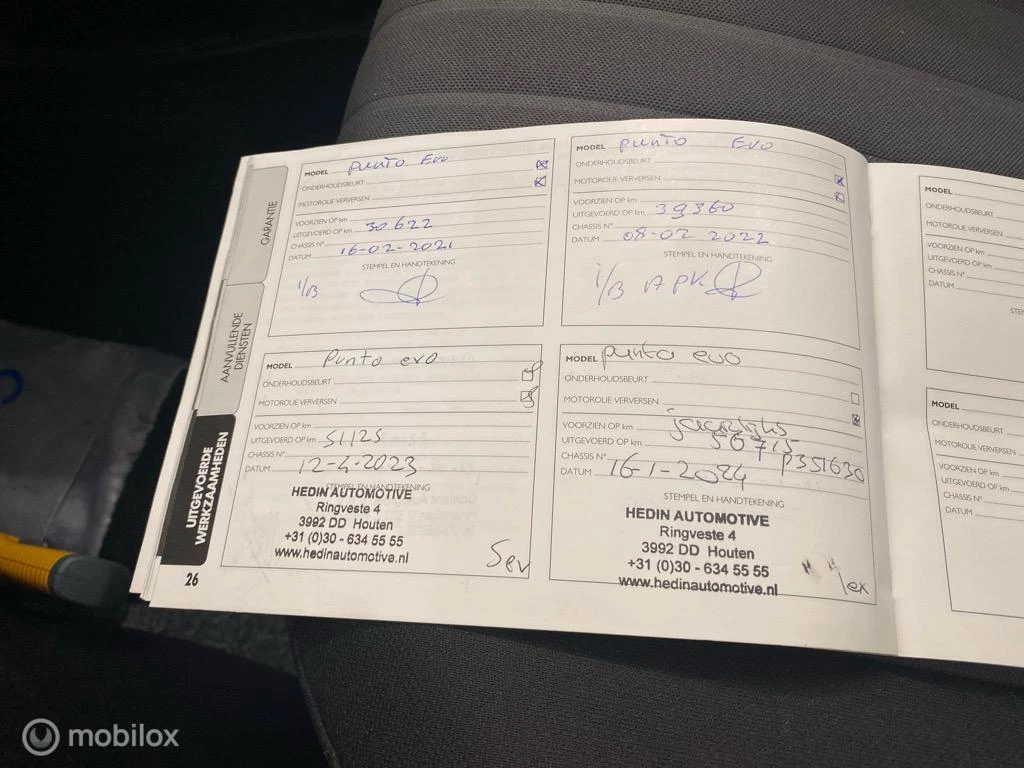 GARANTIE
AANVULLENDE
DIENSTEN
UITGEVOERDE
WERKZAAMHEDEN
26
MODEL Punto Evo
ONDERHOUDSBEURT
MOTOROLIE VERVERSEN
VOORZIEN OP km
UITGEVOERD OP km 30622
CHASSIS N°
DATUM 16-02-2021
STEMPEL EN HANDTEKENING
i/B
MODEL Punto Evo
ONDERHOUDSBEURT
MOTOROLIE VERVERSEN
VOORZIEN OP km
UITGEVOERD OP km 39360
CHASSIS N°
DATUM 08-02 2022
STEMPEL EN HANDTEKENING
i/B APK
MODEL Punto evo
ONDERHOUDSBEURT
MOTOROLIE VERVERSEN
VOORZIEN OP km
UITGEVOERD OP km 51125
CHASSIS N°
DATUM 12-4-2023
STEMPEL EN HANDTEKENING
HEDIN AUTOMOTIVE
Ringveste 4
3992 DD Houten
+31 (0)30 - 634 55 55
www.hedinautomotive.nl
MODEL punto evo
ONDERHOUDSBEURT
MOTOROLIE VERVERSEN
VOORZIEN OP km
UITGEVOERD OP km 56715
CHASSIS N° P351630
DATUM 16-1-2024
STEMPEL EN HANDTEKENING
HEDIN AUTOMOTIVE
Ringveste 4
3992 DD Houten
+31 (0)30 - 634 55 55
www.hedinautomotive.nl
MODEL
ONDERHOUDSBEURT
MOTOROLIE VERVERSEN
VOORZIEN OP km
UITGEVOERD OP km
CHASSIS N°
DATUM
STEM
MODEL
ONDERHOUDSBEURT
MOTOROLIE VERVERSEN
VOORZIEN OP km
UITGEVOERD OP km
CHASSIS N°
DATUM
mobilox